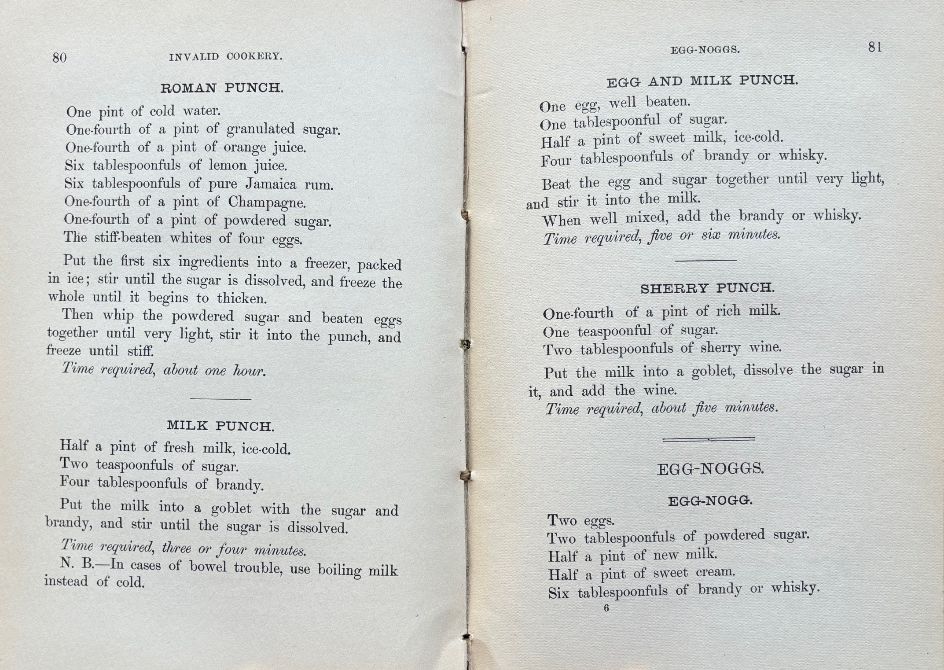 80
INVALID COOKERY.
ROMAN PUNCH.
One pint of cold water.
One-fourth of a pint of granulated sugar.
One-fourth of a pint of orange juice.
Six tablespoonfuls of lemon juice.
Six tablespoonfuls of pure Jamaica rum.
One-fourth of a pint of Champagne.
One-fourth of a pint of powdered sugar.
The stiff-beaten whites of four eggs.
Put the first six ingredients into a freezer, packed
in ice; stir until the sugar is dissolved, and freeze the
whole until it begins to thicken.
Then whip the powdered sugar and beaten eggs
together until very light, stir it into the punch, and
freeze until stiff.
Time required, about one hour.
MILK PUNCH.
Half a pint of fresh milk, ice-cold.
Two teaspoonfuls of sugar.
Four tablespoonfuls of brandy.
Put the milk into a goblet with the sugar and
brandy, and stir until the sugar is dissolved.
Time required, three or four minutes.
N. B.—In cases of bowel trouble, use boiling milk
instead of cold.
EGG-NOGGS.
81
EGG AND MILK PUNCH.
One egg, well beaten.
One tablespoonful of sugar.
Half a pint of sweet milk, ice-cold.
Four tablespoonfuls of brandy or whisky.
Beat the egg and sugar together until very light,
and stir it into the milk.
When well mixed, add the brandy or whisky.
Time required, five or six minutes.
SHERRY PUNCH.
One-fourth of a pint of rich milk.
One teaspoonful of sugar.
Two tablespoonfuls of sherry wine.
Put the milk into a goblet, dissolve the sugar in
it, and add the wine.
Time required, about five minutes.
EGG-NOGGS.
EGG-NOGG.
Two eggs.
Two tablespoonfuls of powdered sugar.
Half a pint of new milk.
Half a pint of sweet cream.
Six tablespoonfuls of brandy or whisky.
6